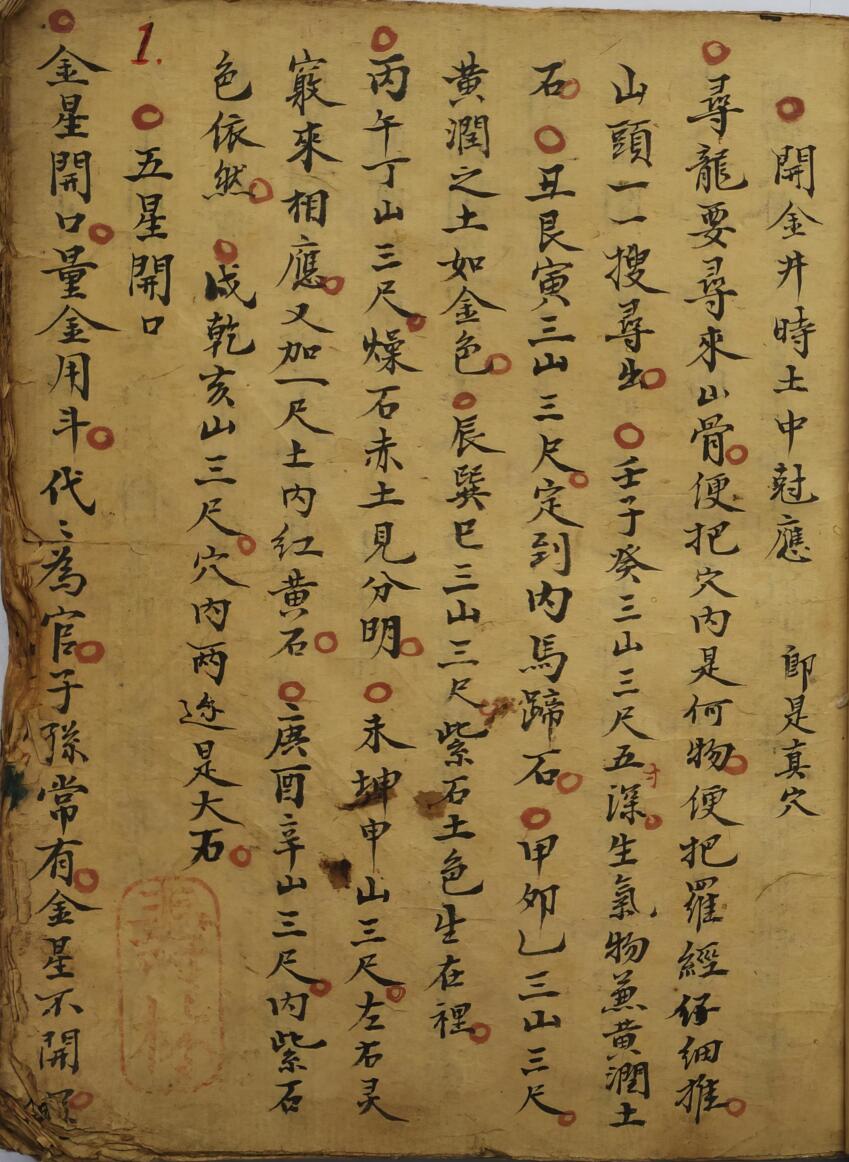 開金井時土中尅應 卽是真穴
尋龍要尋來山骨便把穴内是何物便把羅經仔細推
山頭一一搜尋出 壬子癸三山三尺五寸深生氣物兼黄潤土
石 丑艮寅三山三尺定到内馬蹄石 甲卯乙三山三尺
黄潤之土如金色 辰巽巳三山三尺紫石土色生在裡
丙午丁山三尺燥石赤土見分明 未坤申山三尺左右灵
竅來相應又加一尺土内紅黄石 庚酉辛山三尺内紫石
色依然 戌乾亥山三尺穴内两边是大石
1. 五星開口
金星開口量金用斗代〻為官子孫常有金星不開